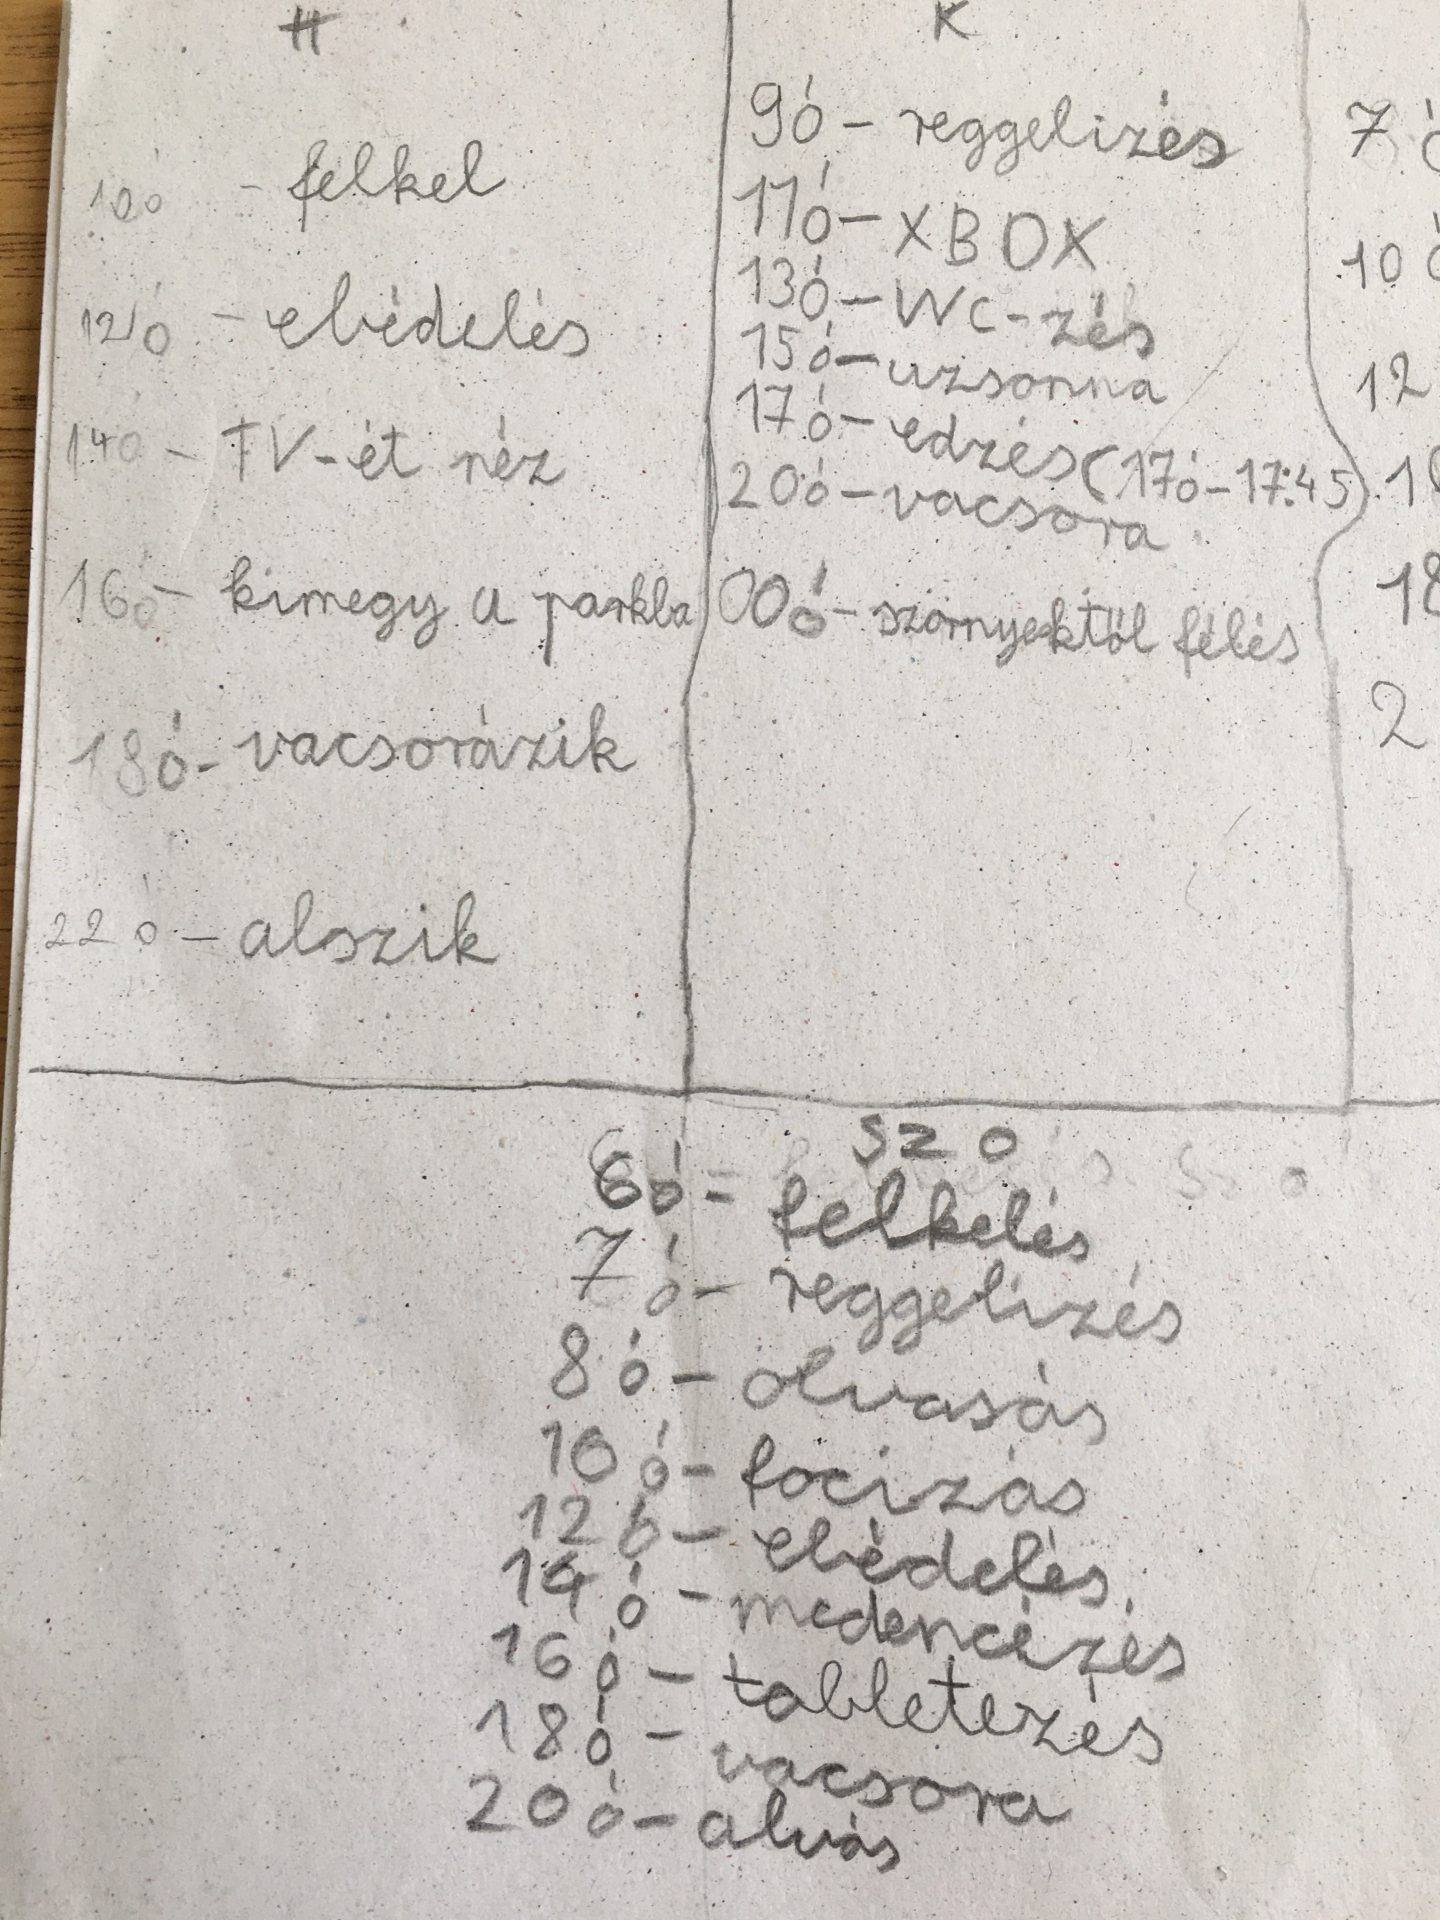 H
10ó - felkel
12ó - ebédelés
14ó - TV-ét néz
16ó - kimegy a parkba
18ó - vacsorázik
22ó - alszik
K
9ó - reggelizés
11ó - XBOX
13ó - WC-zés
15ó - uzsonna
17ó - edzés (17ó - 17:45)
20ó - vacsora
00ó - szörnyektől félés
7 ó
10 ó
12
18
2
SZO
6ó - felkelés
7ó - reggelizés
8ó - olvasás
10ó - focizás
12ó - ebédelés
14ó - medencézés
16ó - tabletezés
18ó - vacsora
20ó - alvás